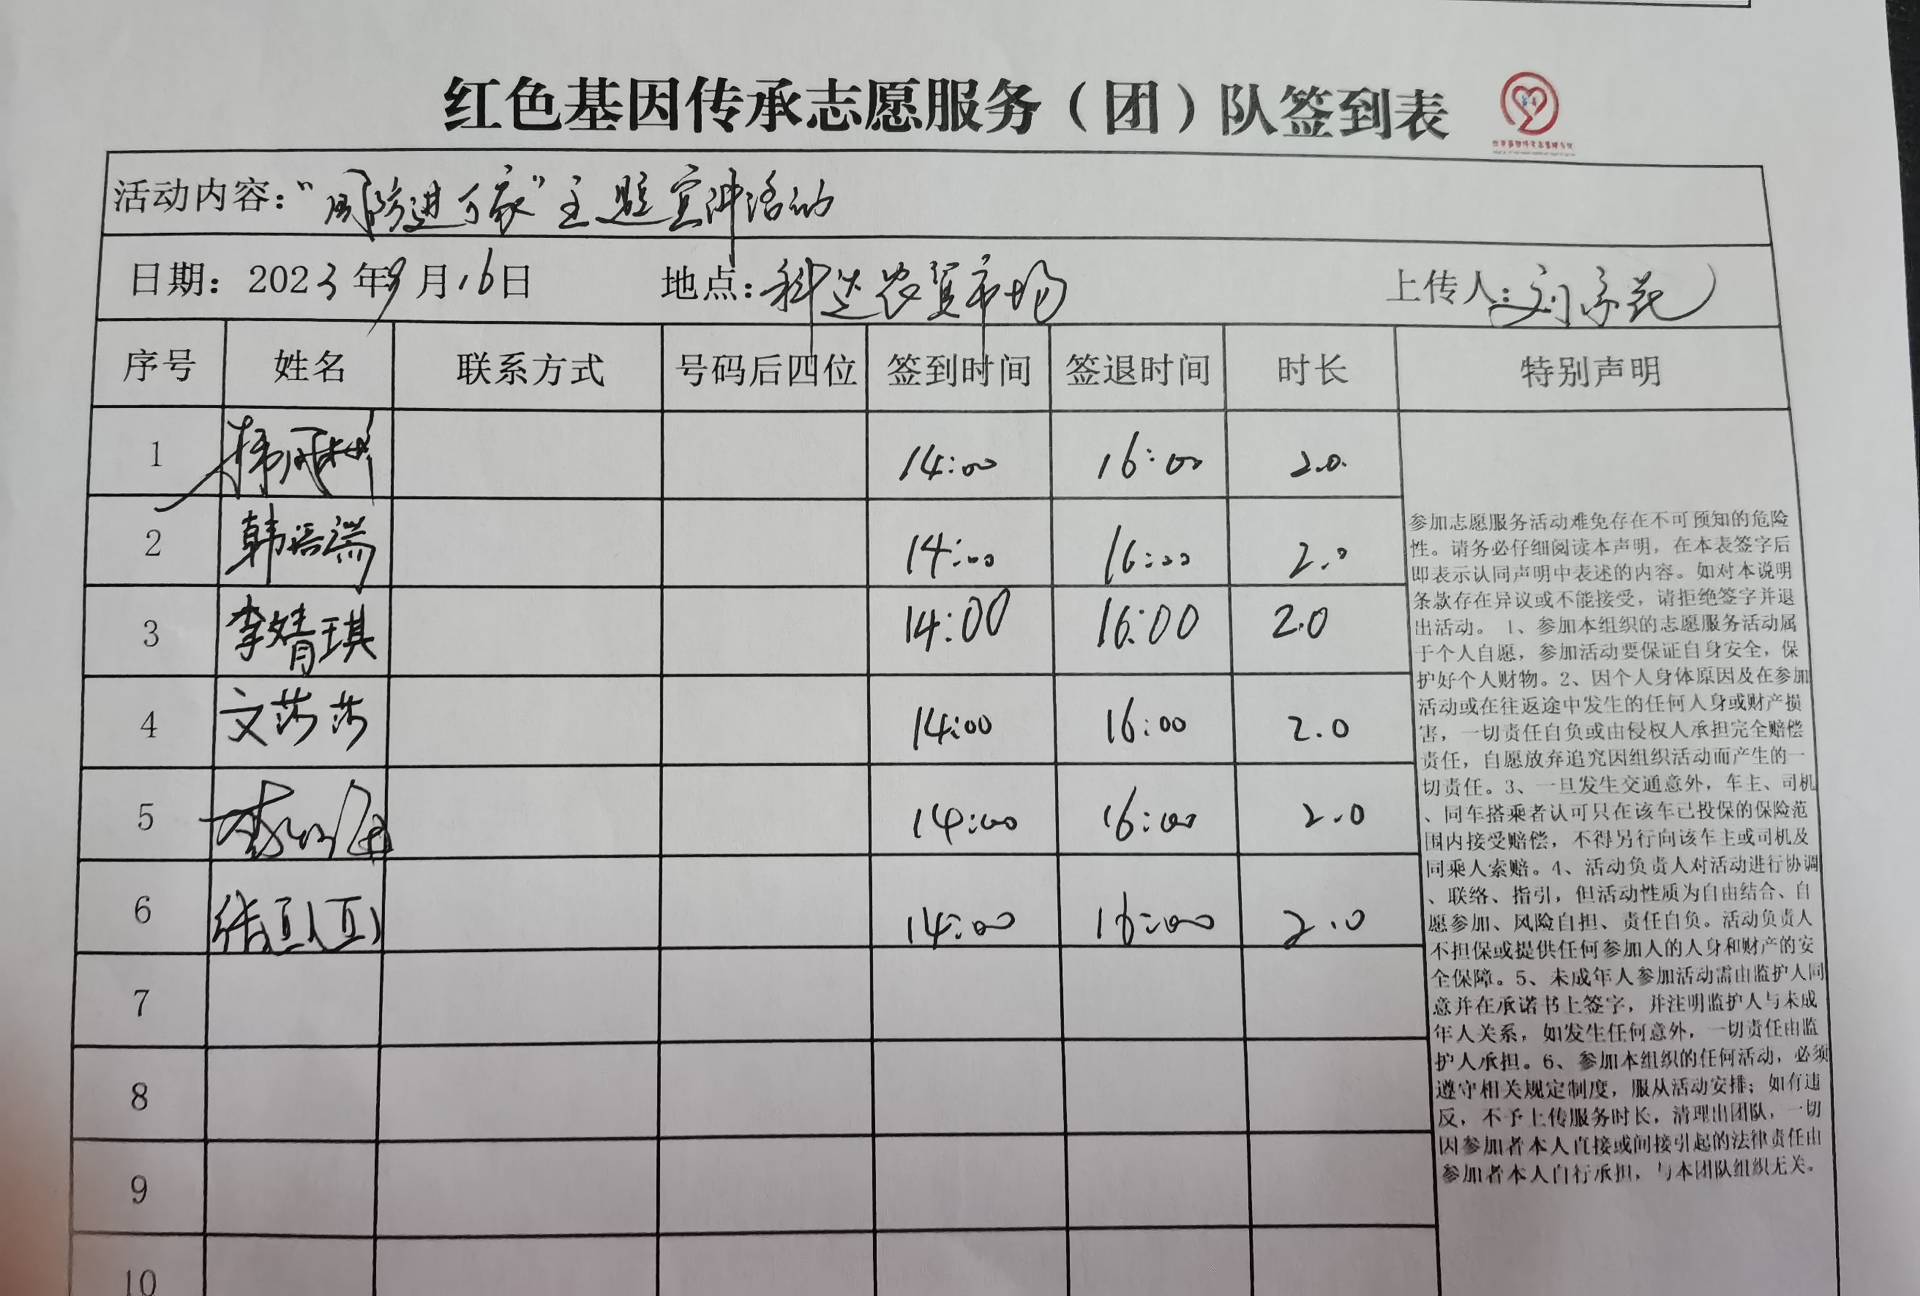 红色基因传承志愿服务（团）队签到表
活动内容：“国防进万家”主题宣讲活动
日期：2023年9月16日 地点：科达农贸市场 上传人：刘
序号 姓名 联系方式 号码后四位 签到时间 签退时间 时长 特别声明
1 14:00 16:00 2.0
2 韩语端 14:00 16:00 2.0
3 李婧琪 14:00 16:00 2.0
4 文莎莎 14:00 16:00 2.0
5 李 14:00 16:00 2.0
6 张 14:00 16:00 2.0
7
8
9
10
参加志愿服务活动难免存在不可预知的危险
性。请务必仔细阅读本声明，在本表签字后
即表示认同声明中表述的内容。如对本说明
条款存在异议或不能接受，请拒绝签字并退
出活动。 1、参加本组织的志愿服务活动属
于个人自愿，参加活动要保证自身安全，保
护好个人财物。2、因个人身体原因及在参加
活动或在往返途中发生的任何人身或财产损
害，一切责任自负或由侵权人承担完全赔偿
责任，自愿放弃追究因组织活动而产生的一
切责任。3、一旦发生交通意外，车主、司机
、同车搭乘者认可只在该车已投保的保险范
围内接受赔偿，不得另行向该车主或司机及
同乘人索赔。4、活动负责人对活动进行协调
、联络、指引，但活动性质为自由结合、自
愿参加、风险自担、责任自负。活动负责人
不担保或提供任何参加人的人身和财产的安
全保障。5、未成年人参加活动需由监护人同
意并在承诺书上签字，并注明监护人与未成
年人关系，如发生任何意外，一切责任由监
护人承担。6、参加本组织的任何活动，必须
遵守相关规定制度，服从活动安排；如有违
反，不予上传服务时长，清理出团队，一切
因参加者本人直接或间接引起的法律责任由
参加者本人自行承担，与本团队组织无关。